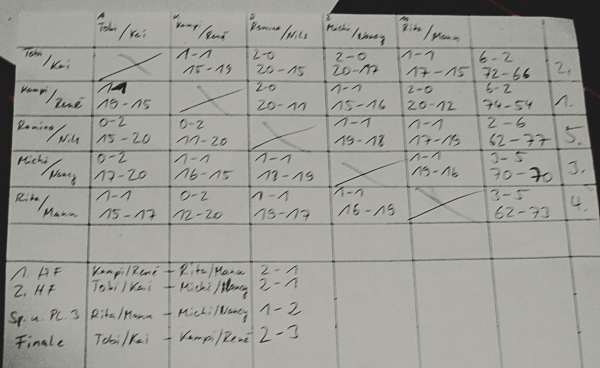 Tobi/Kai Kampi/René Ramina/Nils Michi/Nancy Rita/Mann
Tobi/Kai 1-1 2-0 2-0 1-1 6-2 2.
15-19 20-15 20-17 17-15 72-66
Kampi/René 1-1 2-0 1-1 2-0 6-2 1.
19-15 20-11 15-16 20-12 74-54
Ramina/Nils 0-2 0-2 1-1 1-1 2-6 5.
15-20 11-20 19-18 17-19 62-77
Michi/Nancy 0-2 1-1 1-1 1-1 3-5 3.
17-20 16-15 18-19 19-16 70-70
Rita/Mann 1-1 0-2 1-1 1-1 3-5 4.
15-17 12-20 19-17 16-19 62-73
1. HF Kampi/René - Rita/Mann 2-1
2. HF Tobi/Kai - Michi/Nancy 2-1
Sp. u. Pl. 3 Rita/Mann - Michi/Nancy 1-2
Finale Tobi/Kai - Kampi/René 2-3